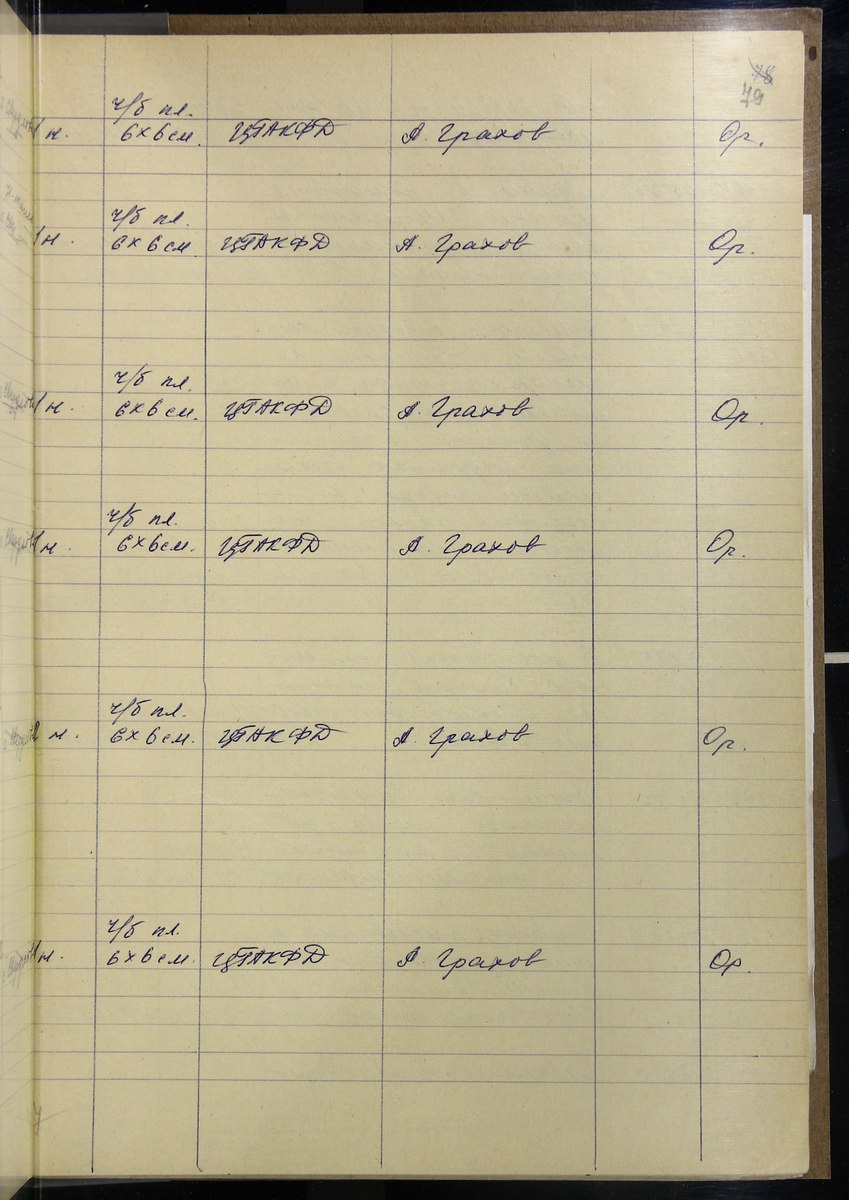 78
79
ч/б пл.
1 н. 6х6 см. ЦГАКФД А. Грахов Ор.
ч/б пл.
1 н. 6х6 см. ЦГАКФД А. Грахов Ор.
ч/б пл.
1 н. 6х6 см. ЦГАКФД А. Грахов Ор.
ч/б пл.
1 н. 6х6 см. ЦГАКФД А. Грахов Ор.
ч/б пл.
2 н. 6х6 см. ЦГАКФД А. Грахов Ор.
ч/б пл.
1 н. 6х6 см. ЦГАКФД А. Грахов Ор.